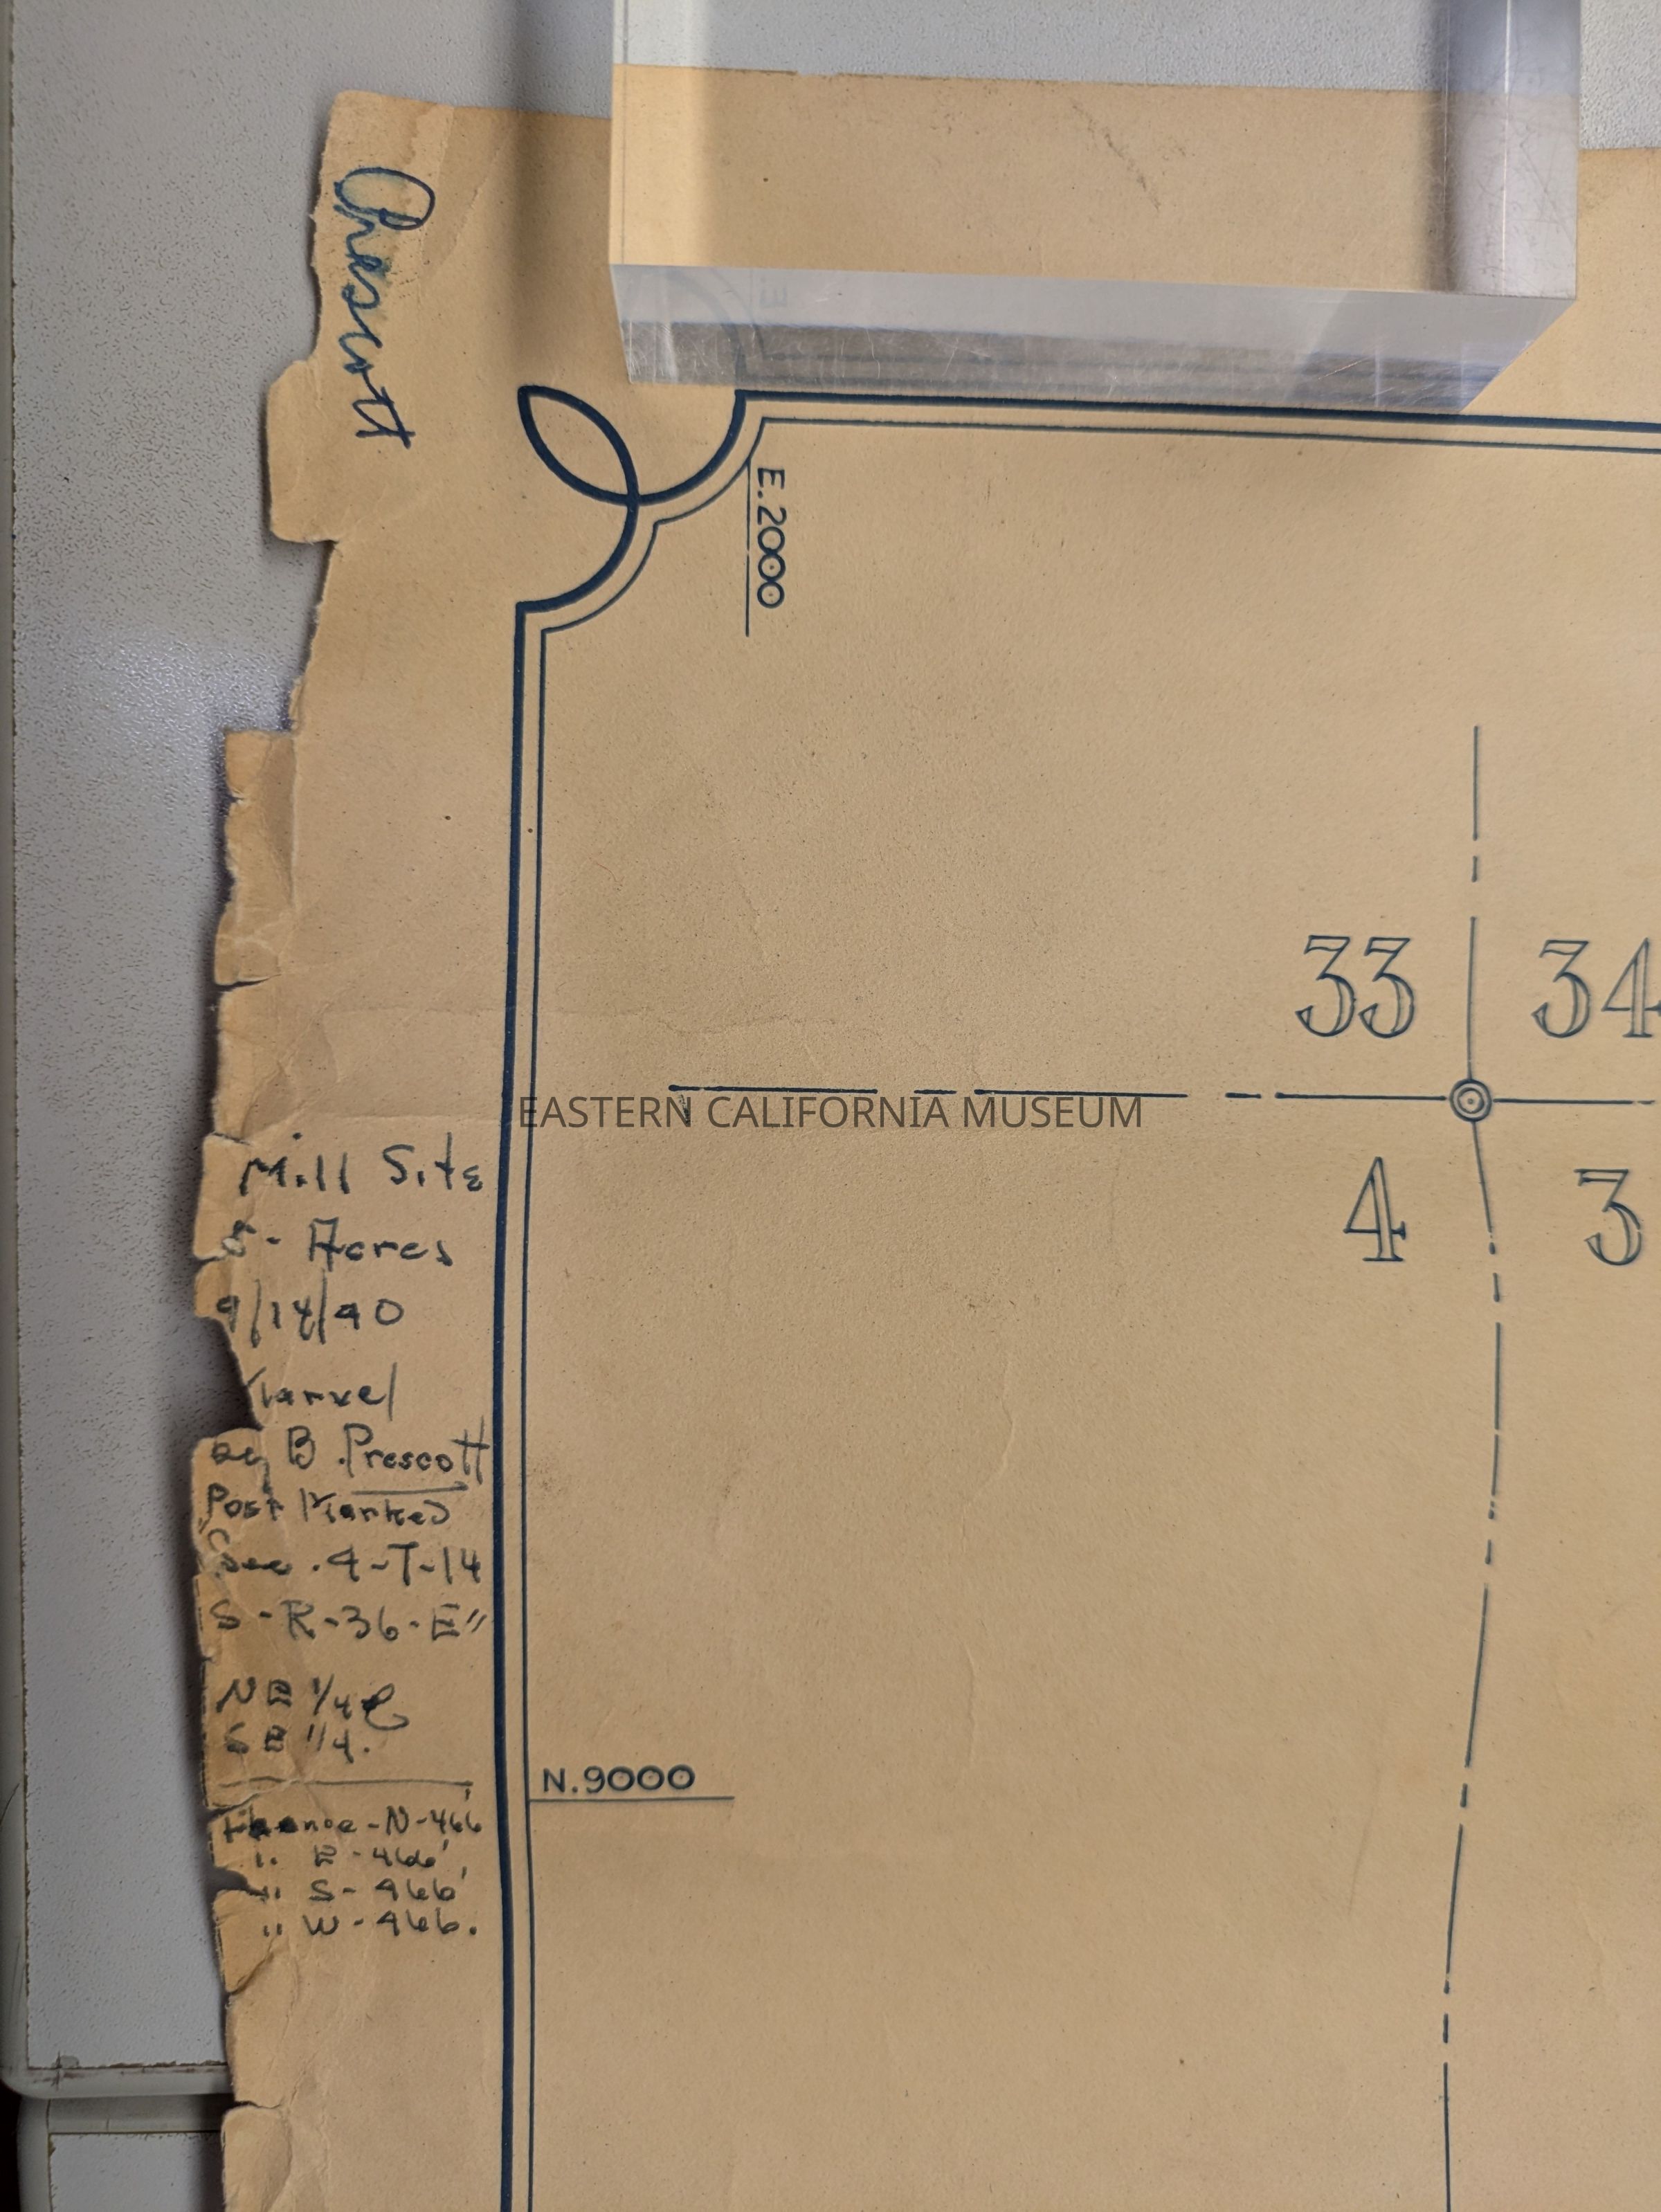 Prescott
E.2000
33 34
EASTERN CALIFORNIA MUSEUM
4 3
Mill Site
5- Acres
9/14/40
by B. Prescott
Post Marked
"Sec. 4-T-14
S-R-36-E"
NE 1/4
SE 1/4.
N.9000
Thence-N-466
" E-466'
" S-466'
" W-466.